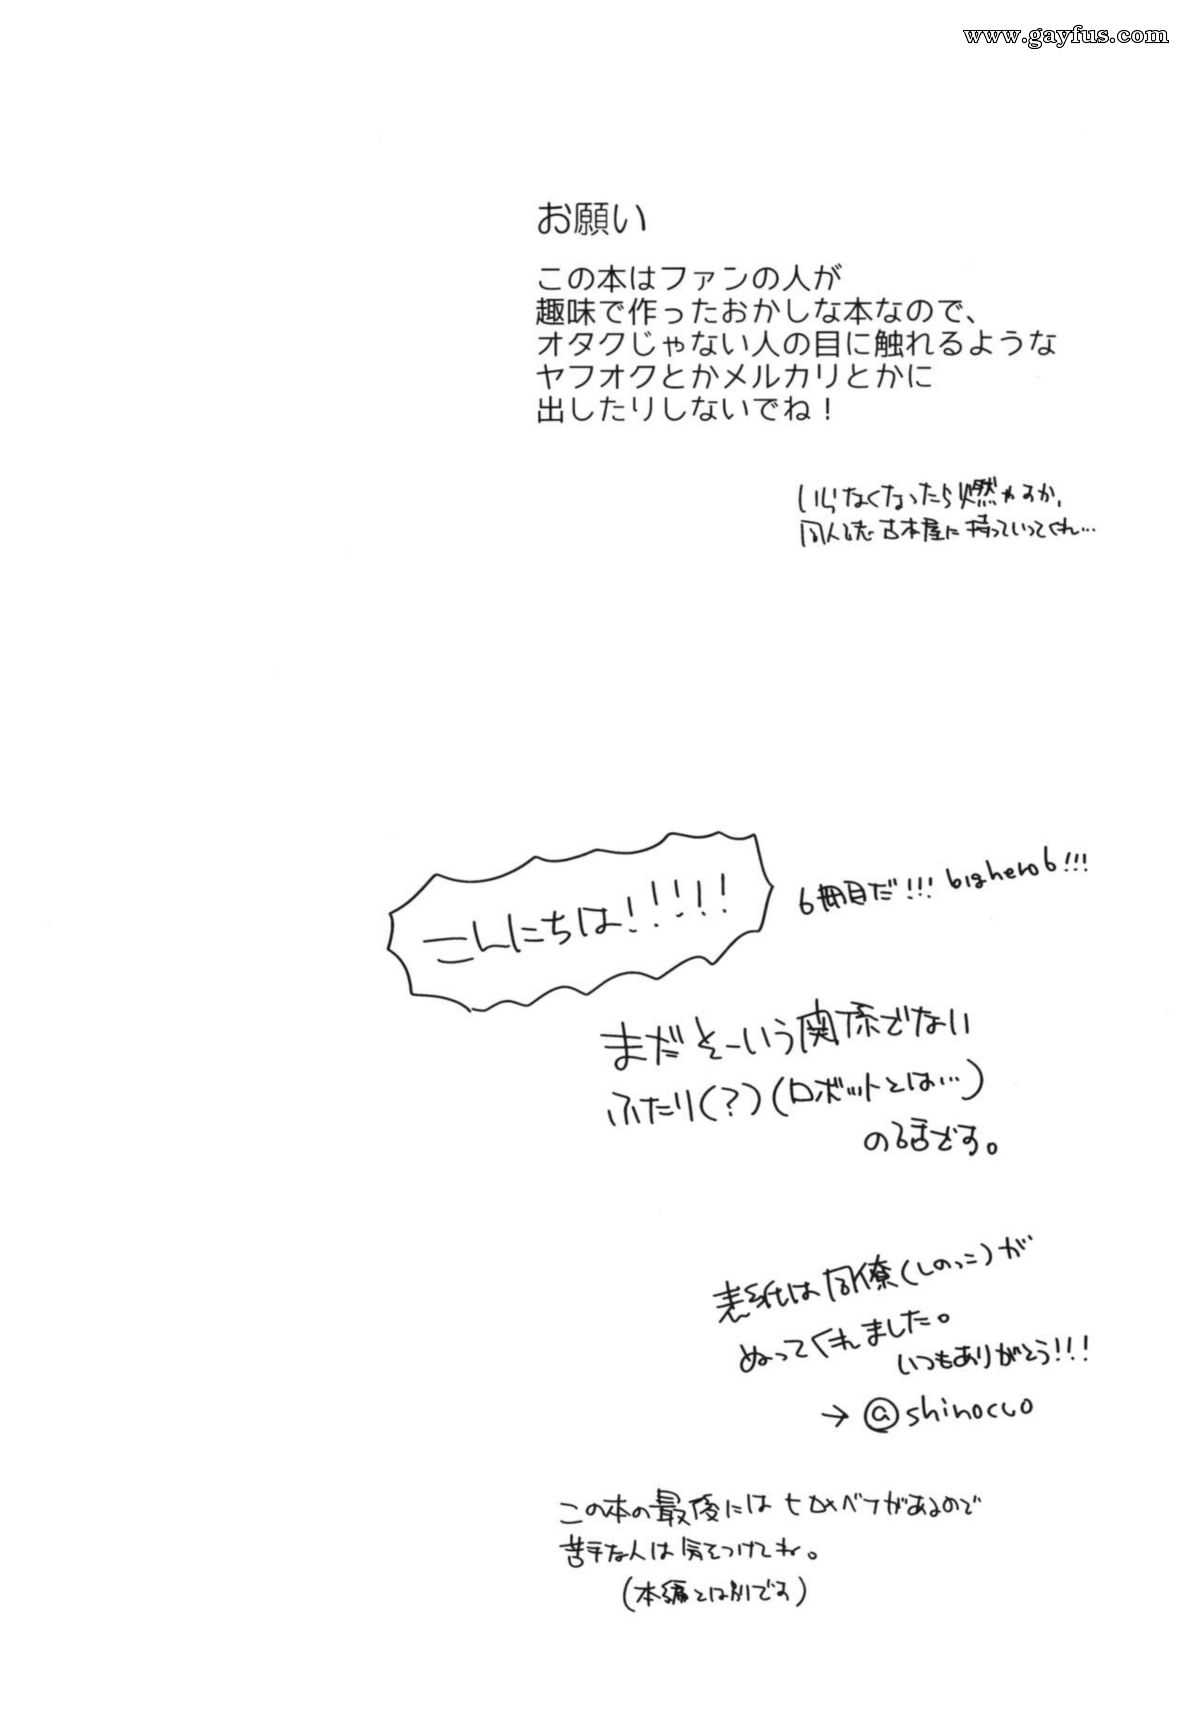 www.gayfus.com
お願い
この本はファンの人が
趣味で作ったおかしな本なので、
オタクじゃない人の目に触れるような
ヤフオクとかメルカリとかに
出したりしないでね！
いらなくなったら燃やすか、
同人誌古本屋に持っていってくれ…
こんにちは!!!!!
6冊目だ!!! bighero6!!!
まだそーいう関係でない
ふたり(?)(ロボットとは…)
の話です。
表紙は同僚(しのっこ)が
ぬってくれました。
いつもありがとう!!!
→@shinocco
この本の最後にはヒロ×ベイがあるので
苦手な人は気をつけてね。
(本編とは別です)